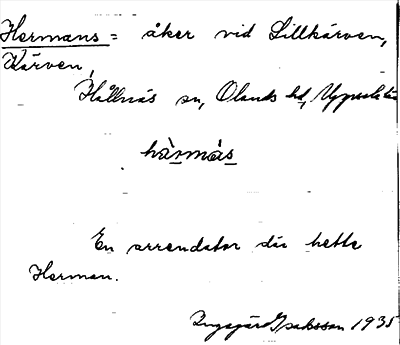 Hermans = åker vid Lillkärven,
Kärven,
Hållnäs sn, Olands hd, Uppsala län
hä̀rmás
En arrendator där hette
Herman.
Ingegärd Isaksson 1935